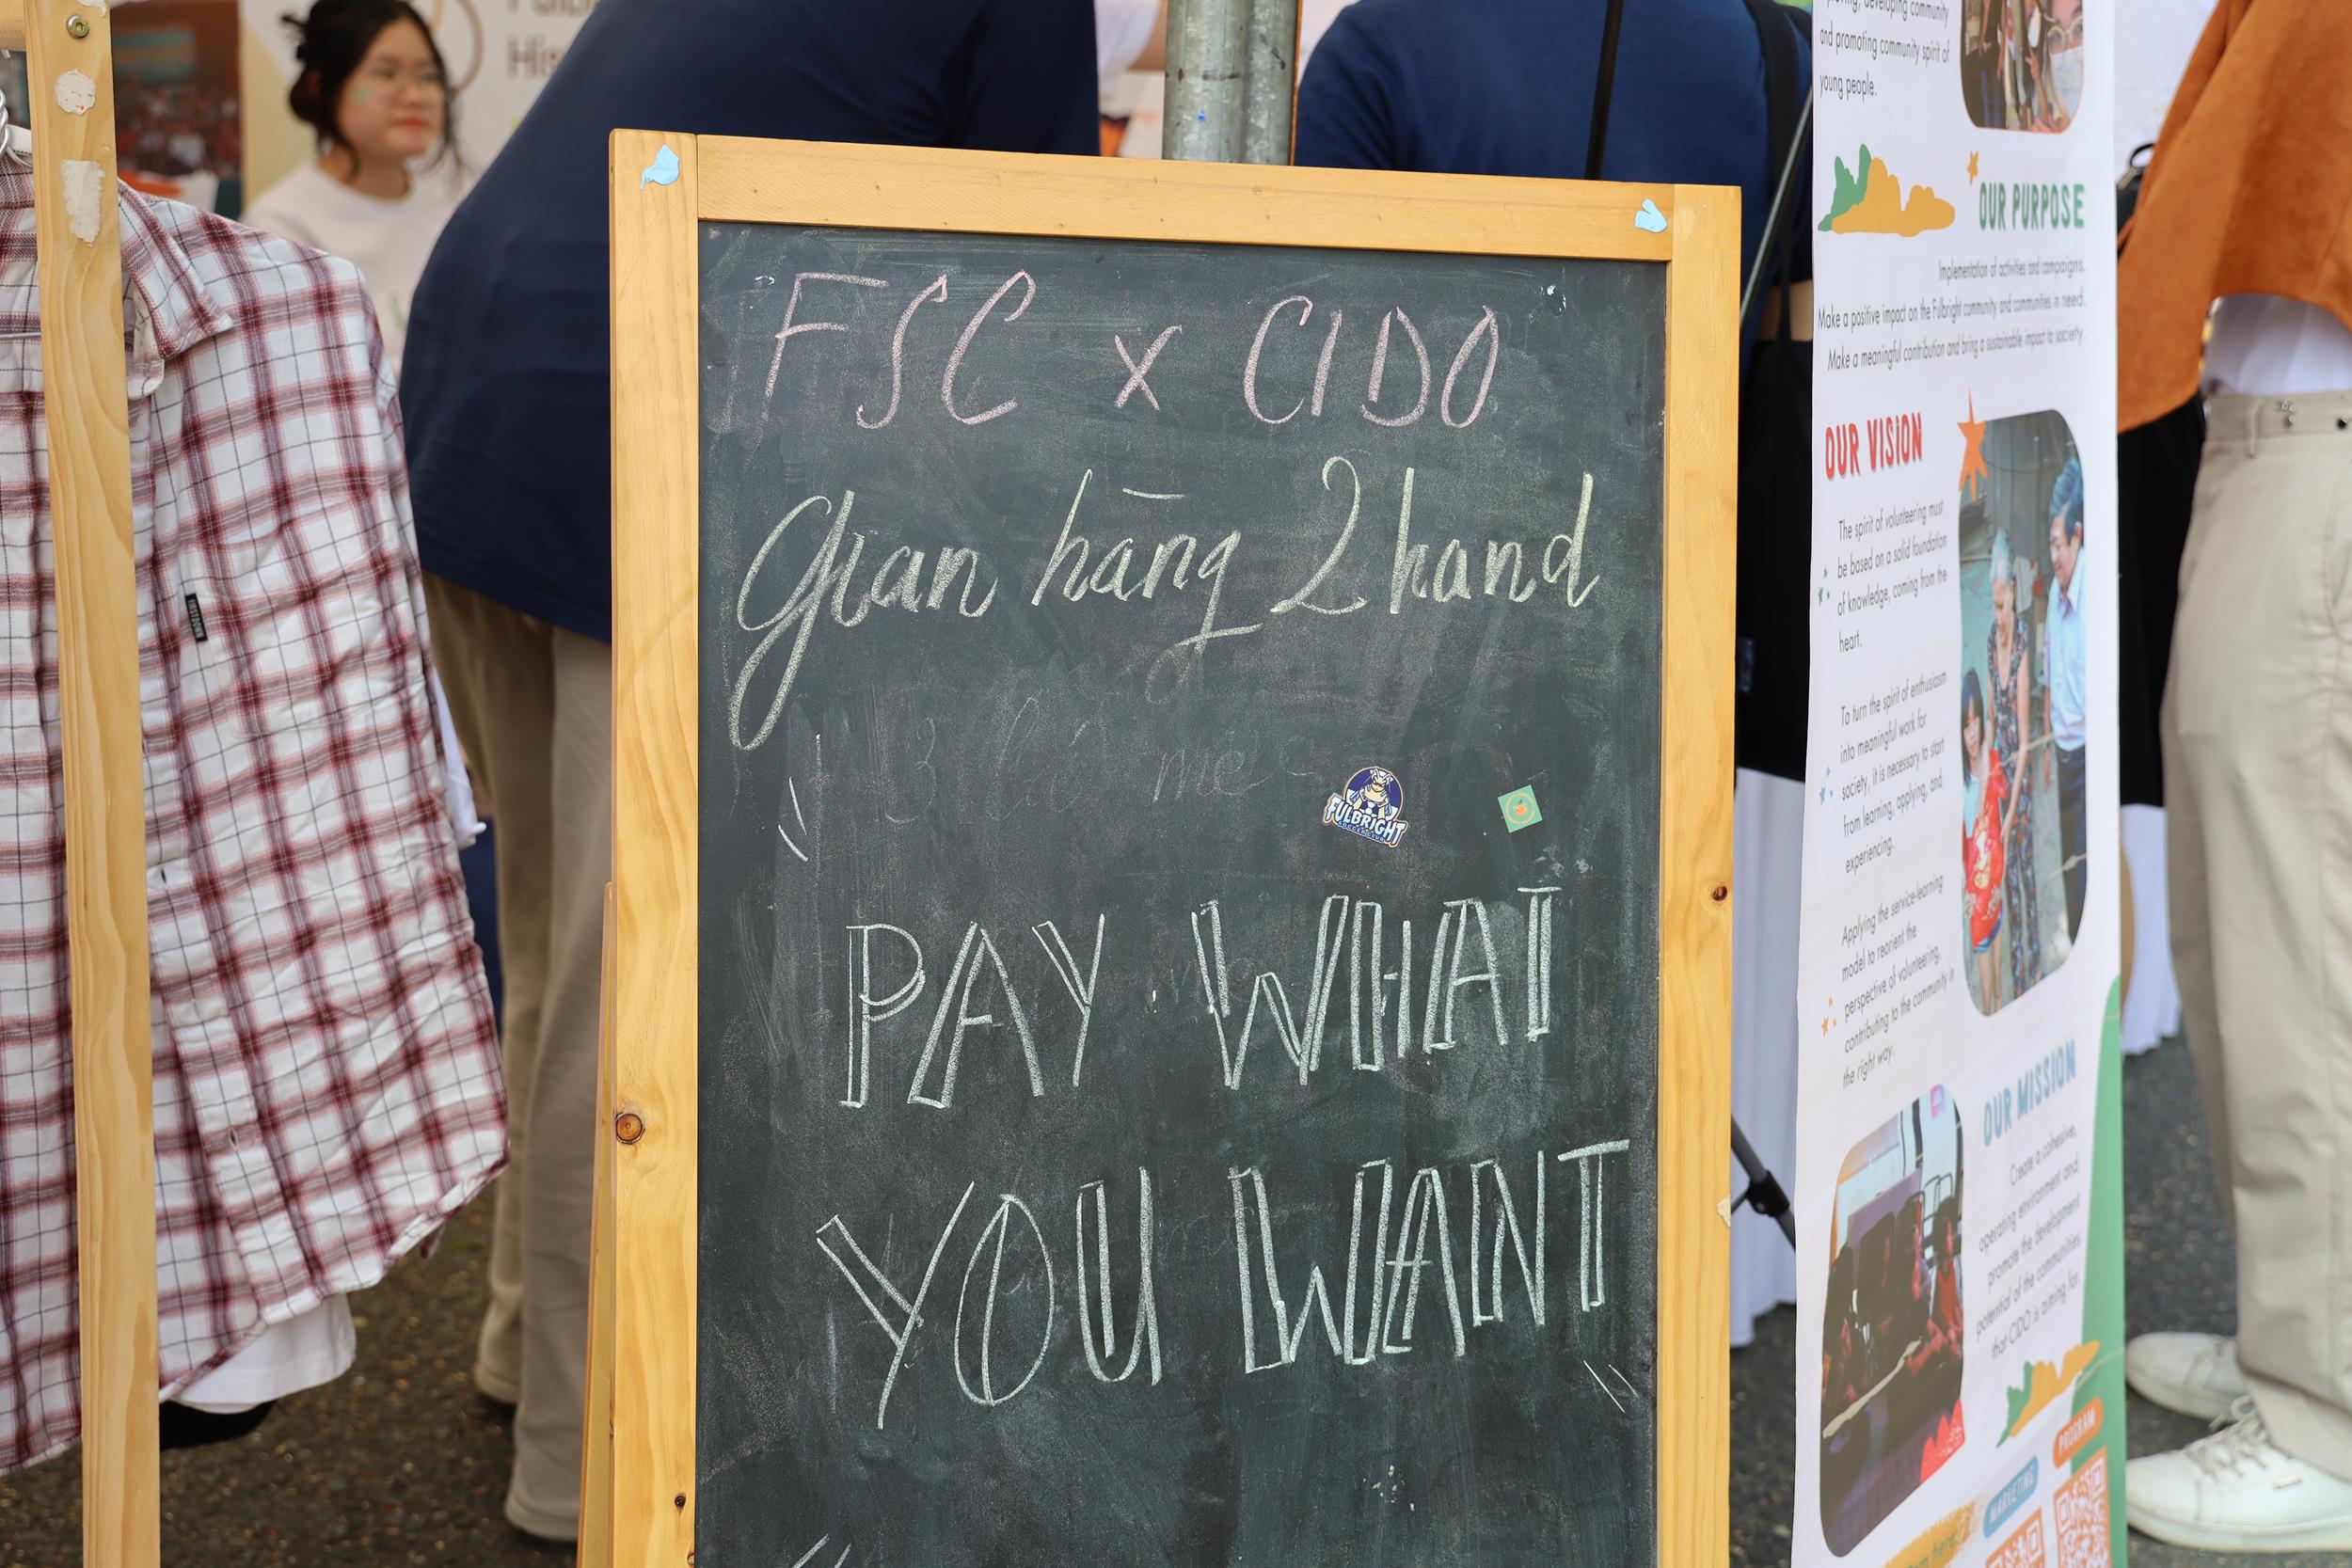 FSC x CIDO
Gian hāng 2 hand
FULBRIGHT
SOCCER CLUB
PAY WHAT
YOU WANT
developing community
and promoting community spirit of
young people.
OUR PURPOSE
Implementation of activities and campaigns.
Make a positive impact on the Fulbright community and communities in need.
Make a meaningful contribution and bring a sustainable impact to society.
OUR VISION
The spirit of volunteering must
be based on a solid foundation
of knowledge, coming from the
heart.
To turn the spirit of enthusiasm
into meaningful work for
society, it is necessary to start
from learning, applying, and
experiencing.
Applying the service-learning
model to reorient the
perspective of volunteering,
contributing to the community in
the right way.
OUR MISSION
Create a cohesive,
operating environment and
promote the development
potential of the communities
that CIDO is aiming for.
MARKETING
PROGRAM